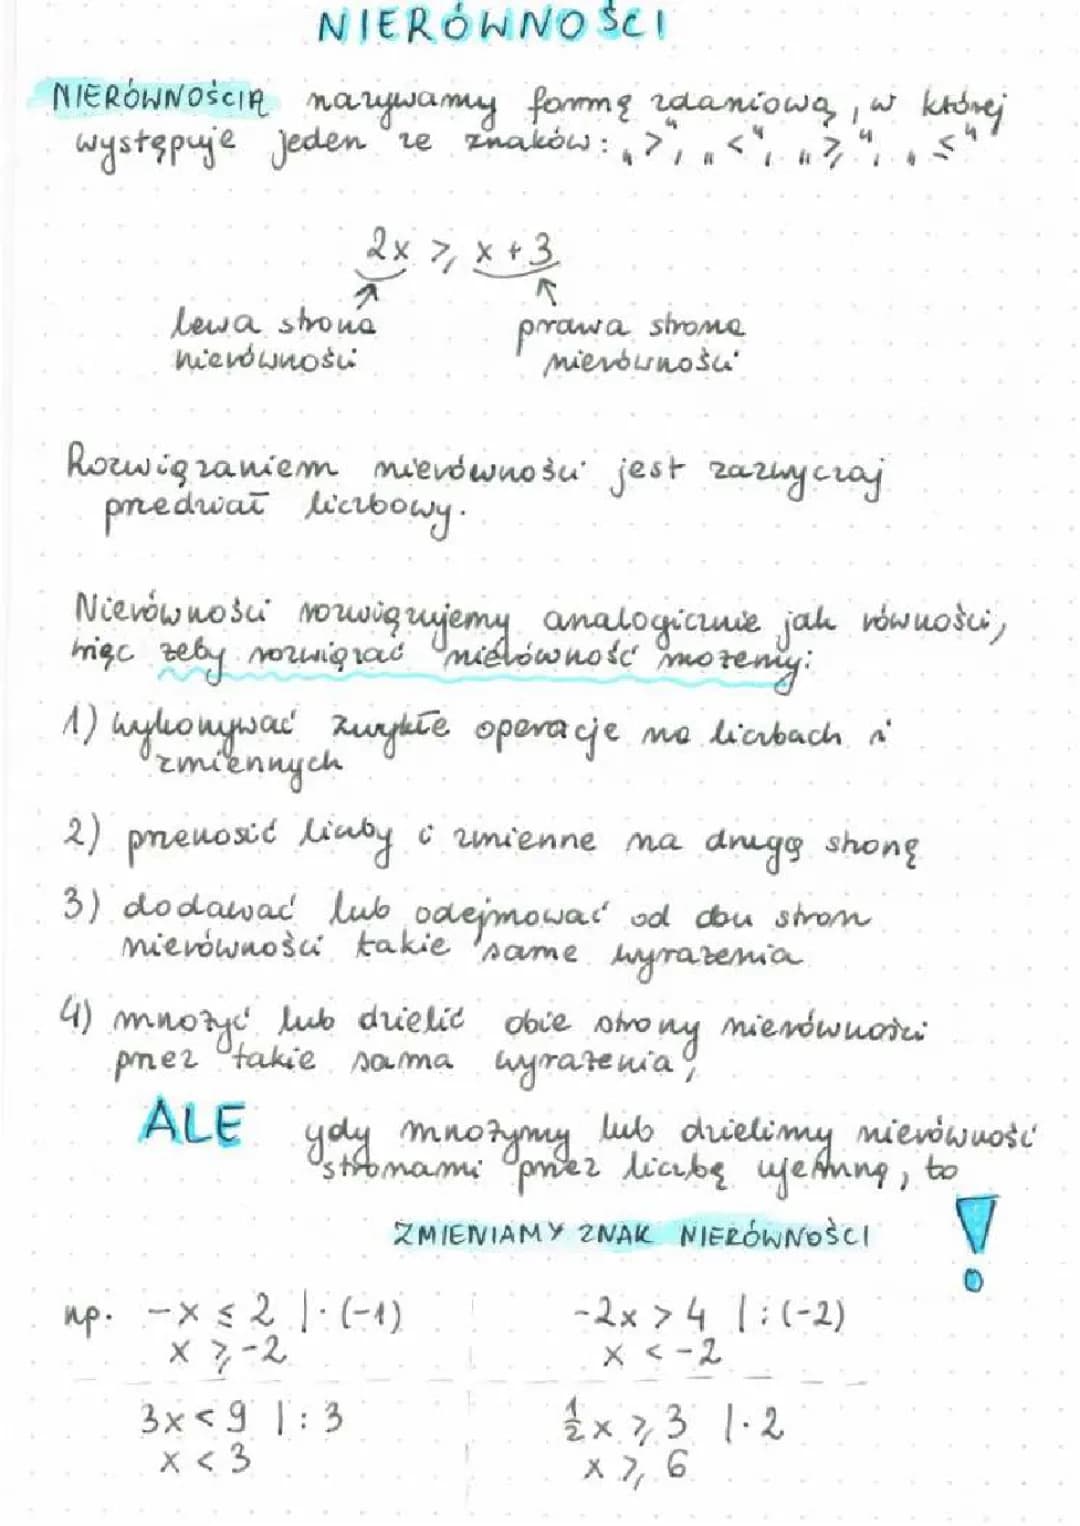 NIERÓWNOŚCI
NIERÓWNOŚCIĄ nazywamy formę zdaniową, w której
występuje jeden ze znaków: „>”, „<”, „⩾”, „≤”
2x ⩾ x + 3
lewa strona prawa strona
nierówności nierówności
Rozwiązaniem nierówności jest zazwyczaj
przedział liczbowy.
Nierówności rozwiązujemy analogicznie jak równości,
więc żeby rozwiązać nierówność możemy:
1) wykonywać zwykłe operacje na liczbach i
zmiennych
2) przenosić liczby i zmienne na drugą stronę
3) dodawać lub odejmować od obu stron
nierówności takie same wyrażenia
4) mnożyć lub dzielić obie strony nierówności
przez takie sama wyrażenia,
ALE gdy mnożymy lub dzielimy nierówność
stronami przez liczbę ujemną, to
ZMIENIAMY ZNAK NIERÓWNOŚCI !
np. -x ≤ 2 |·(-1) -2x > 4 |:(-2)
x ⩾ -2 x < -2
3x < 9 |:3 ½x ⩾ 3 |·2
x < 3 x ⩾ 6